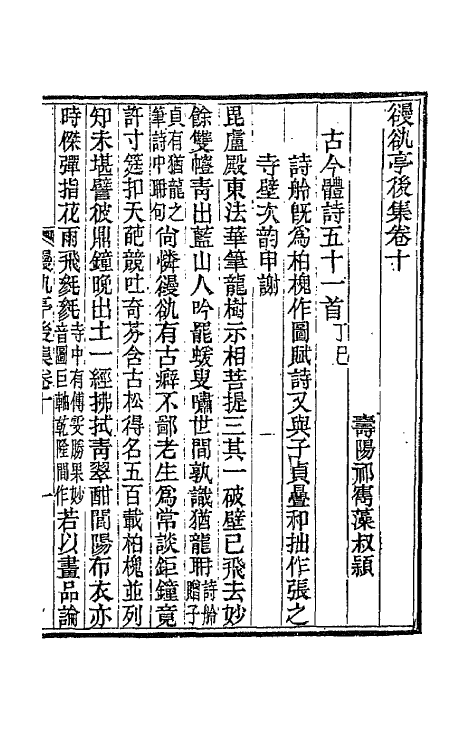 䜱䜪亭後集卷十
壽陽祁寯藻叔頴
古今體詩五十一首丁巳
詩舲旣爲柏槐作圖賦詩又與子貞疊和拙作張之
寺壁次韵申謝
毘盧殿東法華筆龍樹示相菩提三其一破壁已飛去妙
餘雙幰靑出藍山人吟罷蝯叟嘯世間孰識猶龍聃詩舲贈子
貞有猶龍之筆詩中聃句尙憐䜱䜪有古癖不鄙老生爲常談鉅鐘竟
許寸筳扣天葩競吐奇芬含古松得名五百載柏槐並列
知未堪譬彼鼎鐘晚出土一經拂拭靑翠酣閶陽布衣亦
時傑彈指花雨飛毿毿寺中有傅雯勝果妙音圖巨軸乾隆間作若以畫品論
䜱䜪亭後集卷十 一